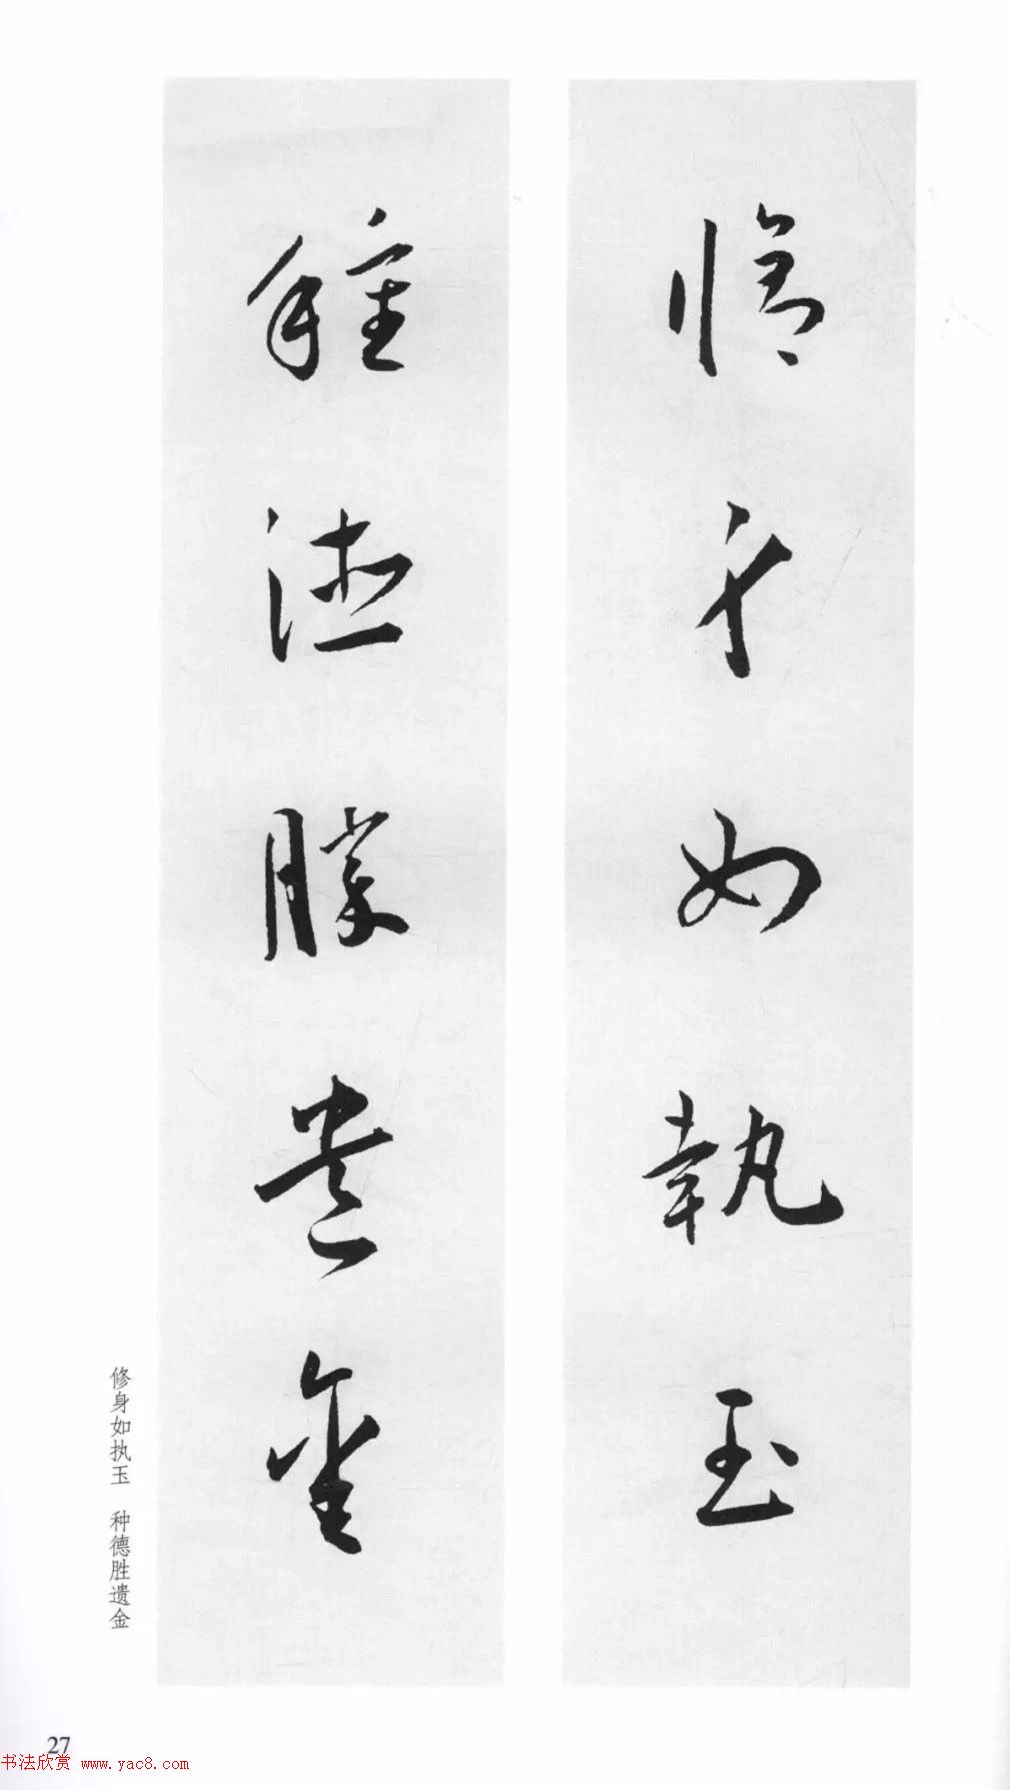 修身如執玉
種德勝遺金
修身如执玉 种德胜遗金
27
书法欣赏 www.yac8.com